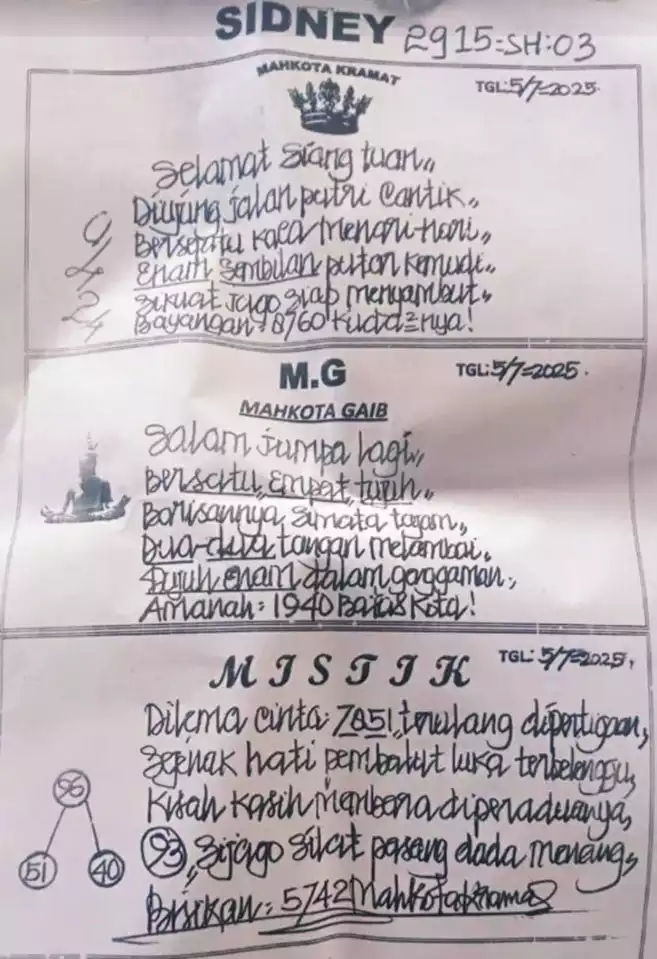 SIDNEY 2915=SH:03
MAHKOTA KRAMAT
TGL:5/7=2025
Selamat Siang tuan,,
Diujung jalan putri Cantik,,
Bersepatu kaca Menari-nari,,
Enam Sembilan putar Kemudi,,
Sikuat Jago Siap menyambut,,
Bayangan: 8760 Kuda=nya!
M.G
TGL:5/7=2025.
MAHKOTA GAIB
Salam Jumpa lagi,,
Bersatu,, Empat, tujuh,,
Barisannya, Simata tajam,,
Dua-dua tangan melambai,
Tujuh enam dalam genggaman,
Amanah: 1940 Batas Kota!
MISTIK
TGL: 5/7=2025,
Dilema cinta: 7851,, terulang dipertigaan,
Segenak hati pembalut luka terbelenggu,
Kisah Kasih Membara diperaduanya,
93,, Sijago Silat pasang dada menang,
Bisikan: 5742 Mahkota Kramat
96
51
40